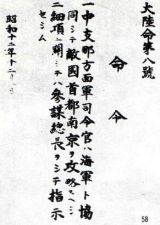 大陸命第八號
命令
一中支那方面軍司令官ハ海軍ト協
同シテ敵國首都南京ヲ攻略スヘシ
二細項ニ關シテハ參謀總長ヲシテ指示
セシム
昭和十二年十二
58